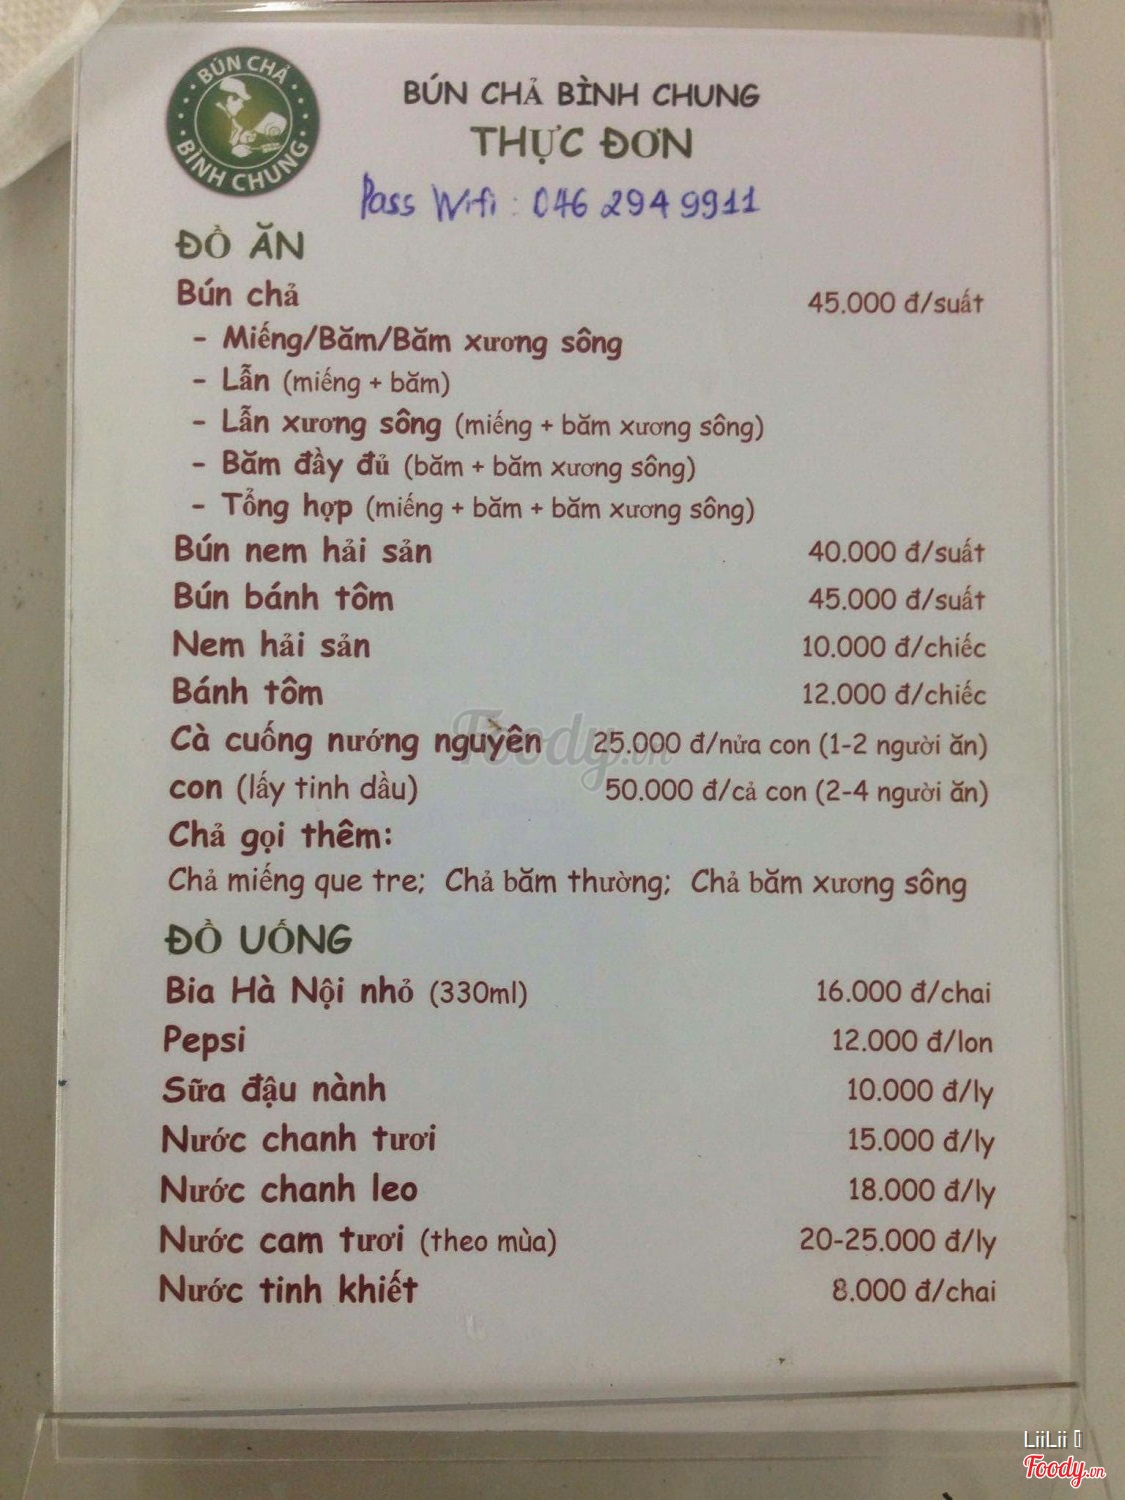 BÚN CHẢ
BÌNH CHUNG
BÚN CHẢ BÌNH CHUNG
THỰC ĐƠN
Pass Wifi : 046 294 9911
ĐỒ ĂN
Bún chả 45.000 đ/suất
- Miếng/Băm/Băm xương sông
- Lẫn (miếng + băm)
- Lẫn xương sông (miếng + băm xương sông)
- Băm đầy đủ (băm + băm xương sông)
- Tổng hợp (miếng + băm + băm xương sông)
Bún nem hải sản 40.000 đ/suất
Bún bánh tôm 45.000 đ/suất
Nem hải sản 10.000 đ/chiếc
Bánh tôm 12.000 đ/chiếc
Foody.vn
Cà cuống nướng nguyên 25.000 đ/nửa con (1-2 người ăn)
con (lấy tinh dầu) 50.000 đ/cả con (2-4 người ăn)
Chả gọi thêm:
Chả miếng que tre; Chả băm thường; Chả băm xương sông
ĐỒ UỐNG
Bia Hà Nội nhỏ (330ml) 16.000 đ/chai
Pepsi 12.000 đ/lon
Sữa đậu nành 10.000 đ/ly
Nước chanh tươi 15.000 đ/ly
Nước chanh leo 18.000 đ/ly
Nước cam tươi (theo mùa) 20-25.000 đ/ly
Nước tinh khiết 8.000 đ/chai
LiiLii
Foody.vn